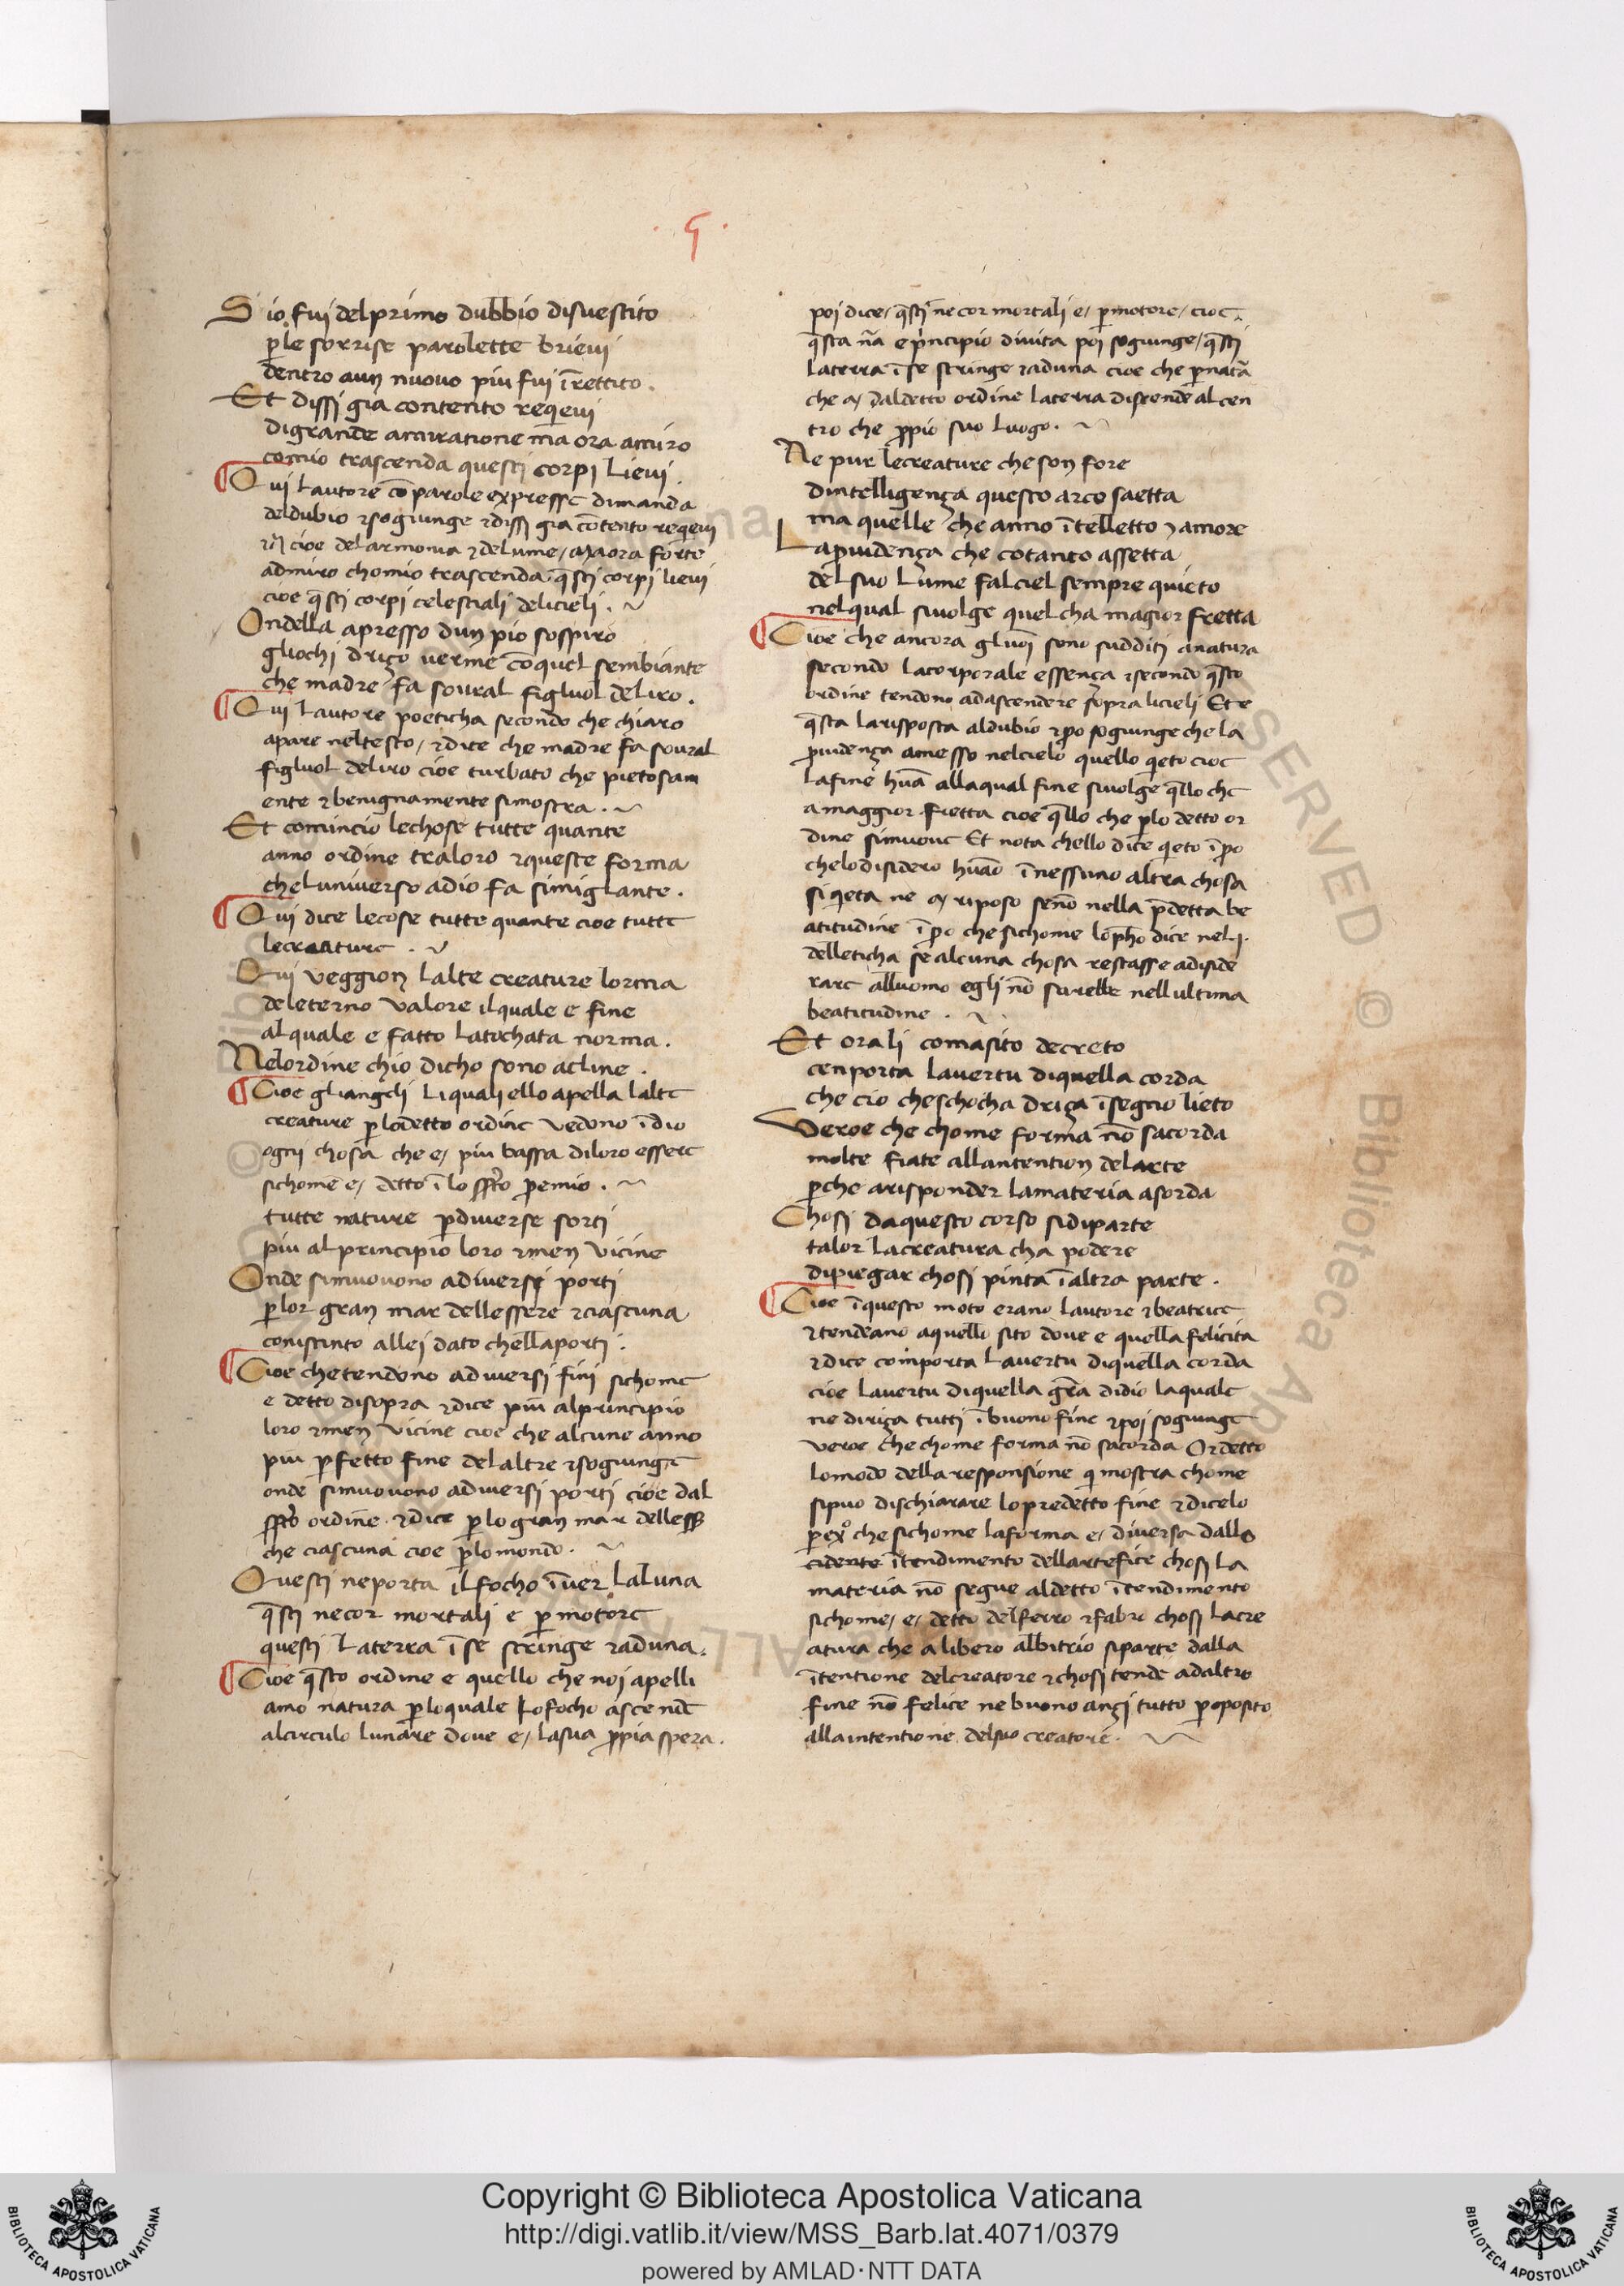 · 5 ·
S io fui del primo dubbio disuestito
p̲le sorrise parolette brieui
dentro aun nuouo piu fui ĩrettito .
Et dissi gia contento reqeui
digrande amiratione ma ora amiro
comio trascenda questi corpi lieui .
Qui lautore cõ parole expresse dimanda
deldubio ⁊sogiunge ⁊dissi gia cõtento reqeui
cioe delarmonia ⁊delume / ma ora forte
admiro chomio trascenda q̃sti corpi lieui
cioe q̃sti corpi celestiali delicieli .
Ondella apresso dun pio sospiro
gliochi driço uerme cõquel sembiante
che madre fa soural figluol deliro .
Qui lautore poeticha secondo che chiaro
apare neltesto / ⁊dice che madre fa soural
figluol deliro cioe turbato che pietosam
ente ⁊benignamente simostra .
Et comincio lechose tutte quante
anno ordine traloro ⁊queste forma
cheluniuerso adio fa simiglante .
Qui dice lecose tutte quante cioe tutte
lecreature .
Qui veggion lalte creature lorma
deleterno valore ilquale e fine
alquale e fatto latochata norma .
Nelordine chio dicho sono acline .
Cioe gliangeli liquali ello apella lalte
creature p̲lodetto ordine vedono ĩ dio
ogni chosa che e / piu bassa diloro essere
sichome e / detto ĩ lo p̲emio .
tutte nature p̲diuerse sorti
piu alprincipio loro ⁊men vicine
Onde simuouono adiuersi porti
p̲lor gran mar dellessere ⁊ciascuna
conistinto allei dato chellaporti .
Cioe chetendono adiuersi fini sichome
e detto disopra ⁊dice piu alprincipio
loro ⁊men vicine cioe che alcune anno
piu p̲fetto fine delaltre ⁊sogiunge
onde simuouono adiuersi porti cioe dal
ordine ⁊dice p̲lo gran mar
che ciascuna cioe p̲lo mondo .
Questi neporta ilfocho ĩuer laluna
q̃sti necor mortali e p̲motore
questi laterra ĩse stringe ⁊aduna .
Cioe q̃sto ordine e quello che noi apelli
amo natura p̲loquale lofocho ascende
alcirculo lunare doue e / lasua p̲pia spera .
poi dice / q̃sti necor mortali e / p̲motore / cioe
q̃sta nã e p̲ncipio diuita poi sogiunge / q̃sti
laterra ĩse stringe ⁊aduna cioe che p̲natã
che daldetto ordine laterra discende alcen
tro che p̲pio suo luogo .
Ne pur lecreature cheson fore
dintelligença questo arco saetta
ma quelle che anno ĩtelletto ⁊ amore
La p̲uidença che cotanto assetta
del suo lume falciel sempre quieto
nelqual siuolge quelcha magior fretta
Cioe che ancora gluoĩ sono sudditi anatura
secondo lacorporale essença ⁊secondo q̃sto
ordine tendono adascendere sopra licieli Et e
q̃sta larisposta aldubio ⁊po sogiunge che la
p̲uidença amesso nelcielo quello qeto cioe
lafine huã allaqual fine siuolge q̃llo che
amaggior fretta cioe q̃llo che p̲lo detto or
dine simuoue Et nota chello dice qeto ĩ po
chelodisidero huão ĩ nessuno altra chosa
siqeta ne riposo senõ nella p̲detta be
atitudine ĩ po che sichome dice nel
delleticha se alcuna chosa restasse adiside
rare alluomo egli nõ sarebbe nellultima
beatitudine .
Et orali comasito decreto
cenporta lauertu diquella corda
che cio cheschocha driça ĩsegno lieto
Veroe che chome forma nõ sacorda
molte fiate allantention delarte
p̲che arisponder lamateria asorda
Chosi daquesto corso sidiparte
talor lacreatura cha podere
dipiegar chosi pinta ĩ altra parte .
Cioe ĩ questo moto erano lautore ⁊beatrice
⁊tendeano aquello sito doue e quella felicita
⁊dice comporta lauertu diquella corda
cioe lauertu diquella grã didio laquale
ne diriça tutti ĩ buono fine ⁊poi sogiunge
veroe che chome forma nõ sacorda Or detto
lomodo dellaresponsione q mostra chome
sipuo dischiarare lo predetto fine ⁊dicelo
p̲ exº che sichome laforma e / diuersa dallo
cidente ĩtendimento dellartefice chosi la
materia nõ segue aldetto ĩtendimento
sichome / e / detto delferro ⁊fabro chosi lacre
atura che a libero albitrio siparte dalla
ĩtentione delcreatore ⁊chosi tende adaltro
fine nõ felice ne buono ançi tutto p̲oposito
allaintentione delsuo creatore .
Copyright © Biblioteca Apostolica Vaticana
http://digi.vatlib.it/view/MSS_Barb.lat.4071/0379
powered by AMLAD·NTT DATA
BIBLIOTECA APOSTOLICA VATICANA
BIBLIOTECA APOSTOLICA VATICANA